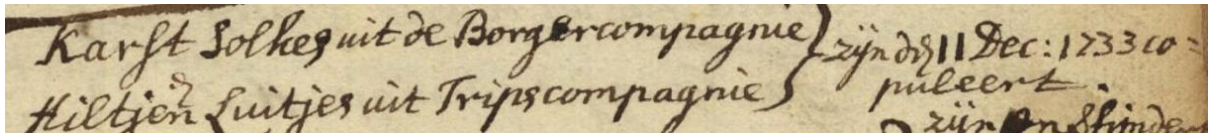 Karst Solkes uit de Borgercompagnie
Hiltjen Luitjes uit Tripscompagnie
zijn dn 11 Dec: 1733 co=
puleert.
zijn